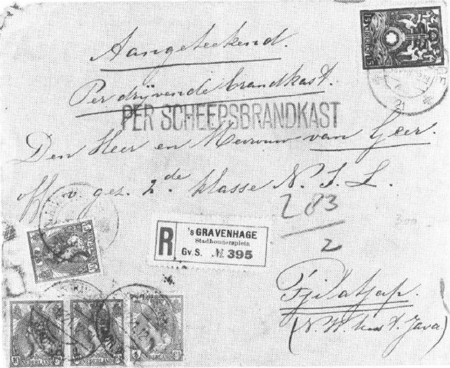 Aangeteekend.
Per drijvende brandkast.
PER SCHEEPSBRANDKAST
Den Heer en Mevrouw van Geer
off. v. gez. 2de klasse N. I. L.
283
2
R
's GRAVENHAGE
Stadhoudersplein
Gv.S. № 395
Tjilatjap
Java)